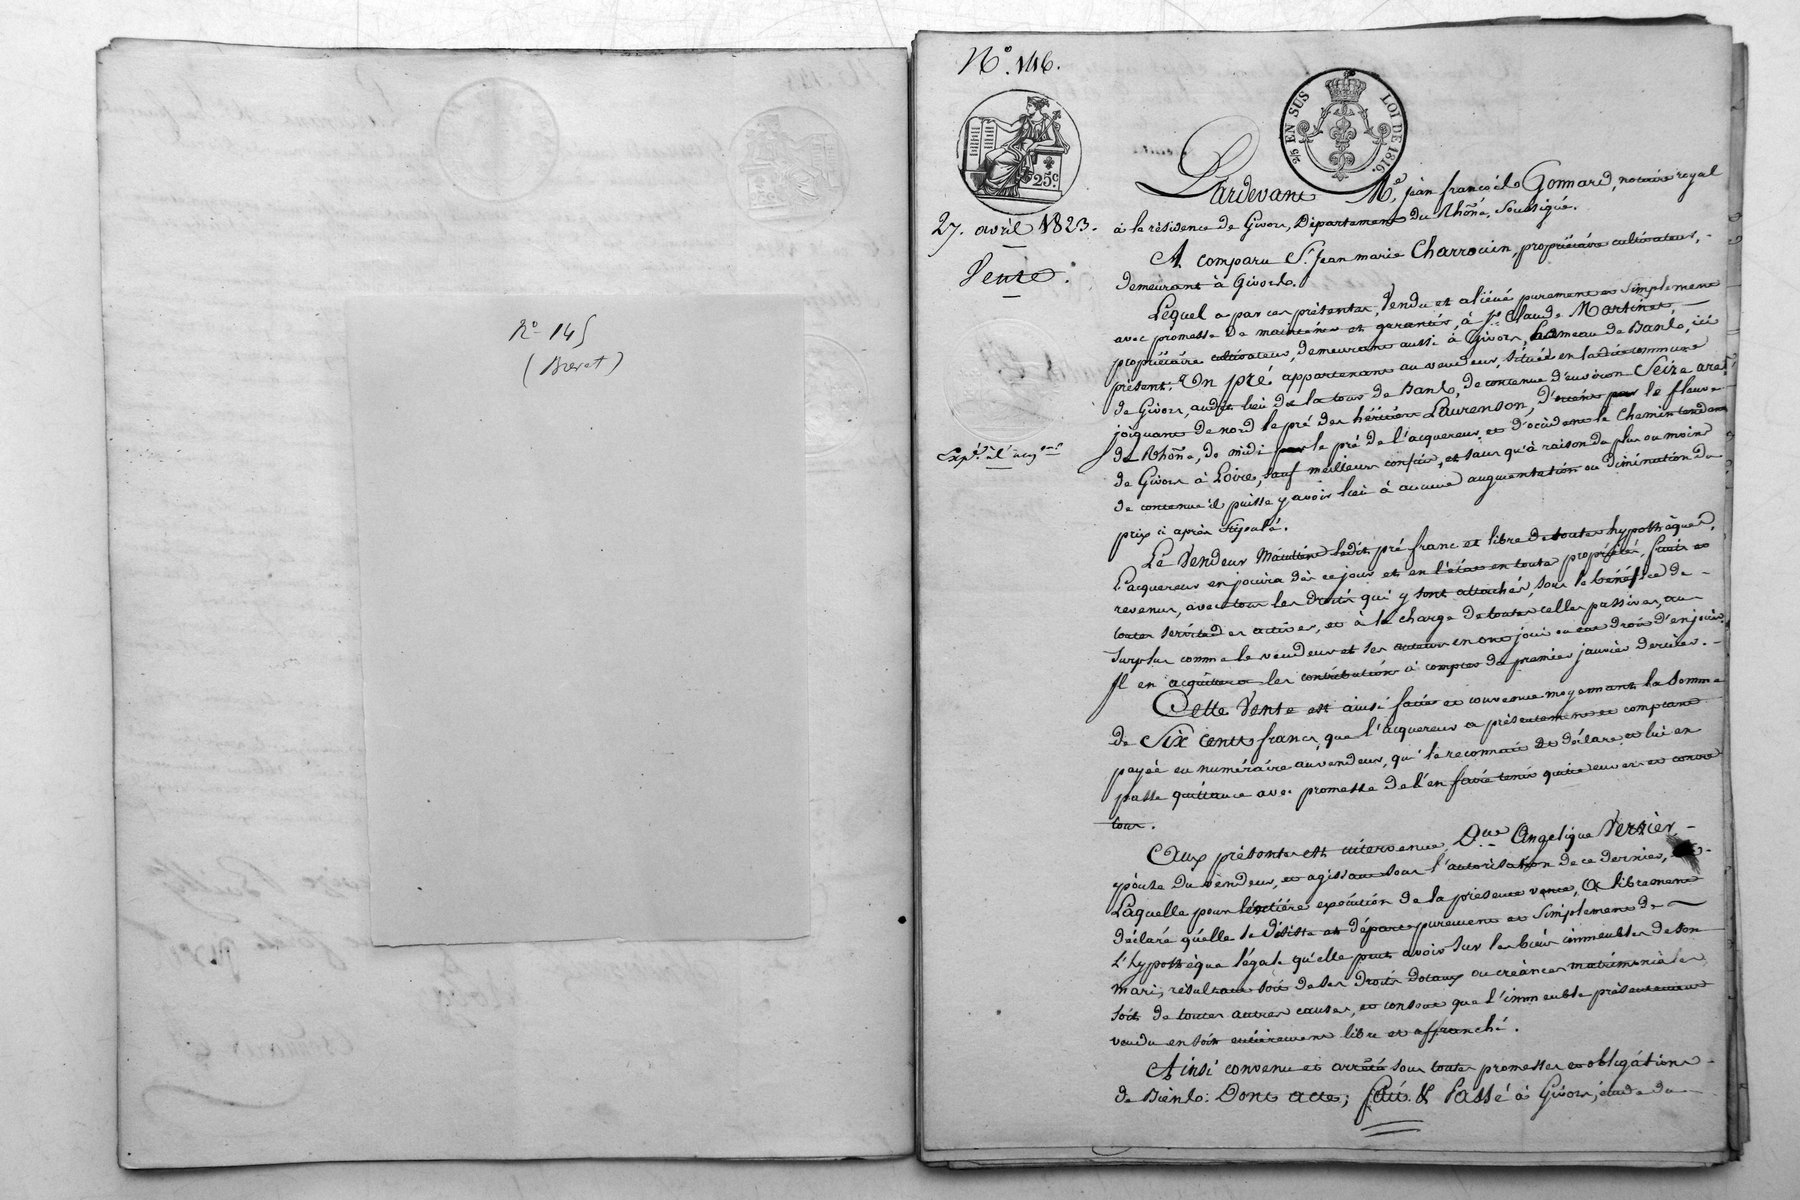 N° 145
(Brevet)
N° 146.
2/5 EN SUS LOI DE 1816.
25c.
27. avril 1823.
Vente.
Expé. à l'acqr.
Pardevant Me. jean françois Gonnard, notaire royal
à la résidence de Givors, Département du Rhône, Soussigné.
A comparu Sr. Jean marie Charrouin, propriétaire cultivateur,
demeurant à Givors.
Lequel a par ces présentes, Vendu et aliéné purement et Simplement
avec promesse de maintenir et garantir, à Sr. Claude Martinet
propriétaire cultivateur, demeurant aussi à Givors, hameau de Bans, ici
présent; Un pré appartenant au vendeur, situé en ladite commune
de Givors, audit lieu de la tour de Bans, de contenue d'environ Seize ares,
joignant de nord le pré des héritiers Laurenson, d'orient le fleuve
du Rhône, de midi le pré de l'acquereur et d'occident le Chemin tendant
de Givors à Loire, sauf meilleurs confins, et sans qu'à raison du plus ou moins
de contenue il puisse y avoir lieu à aucune augmentation ou diminution du
prix ci après stipulé.
Le Vendeur Maintient ledit pré franc et libre de toutes hypothèques,
L'acquereur en jouira dès ce jour et en l'état en toute propriété, fruits et
revenus, avec tous les Droits qui y sont attachés, sous le bénéfice de
toutes servitudes actives, et à la charge de toutes celles passives, au
surplus comme le vendeur et ses auteurs en ont joui ou eut droit d'en jouir
Il en acquittera les contributions à compter du premier janvier dernier.
Cette Vente est ainsi faite et convenue moyennant la Somme
de Six Cents francs, que l'acquereur a présentement et comptant
payée en numéraire au vendeur, qui le reconnait et déclare et lui en
passe quittance avec promesse de l'en faire tenir quitte envers et contre
tous.
Aux présentes est intervenue De. Angelique Versier,
épouse du vendeur, et agissant sous l'autorisation de ce dernier,
Laquelle pour l'entière exécution de la présente vente, a librement
déclaré qu'elle se désiste et départ purement et simplement de
l'hypothèque légale qu'elle peut avoir sur les biens immeubles de son
mari, résultant soit de ses Droits Dotaux ou créances matrimoniales
soit de toutes autres causes, et consent que l'immeuble présentement
vendu en soit entièrement libre et affranchi.
Ainsi convenu et arrêté sous toutes promesses et obligations
de Biens: Dont acte; fait & Passé à Givors, étude du